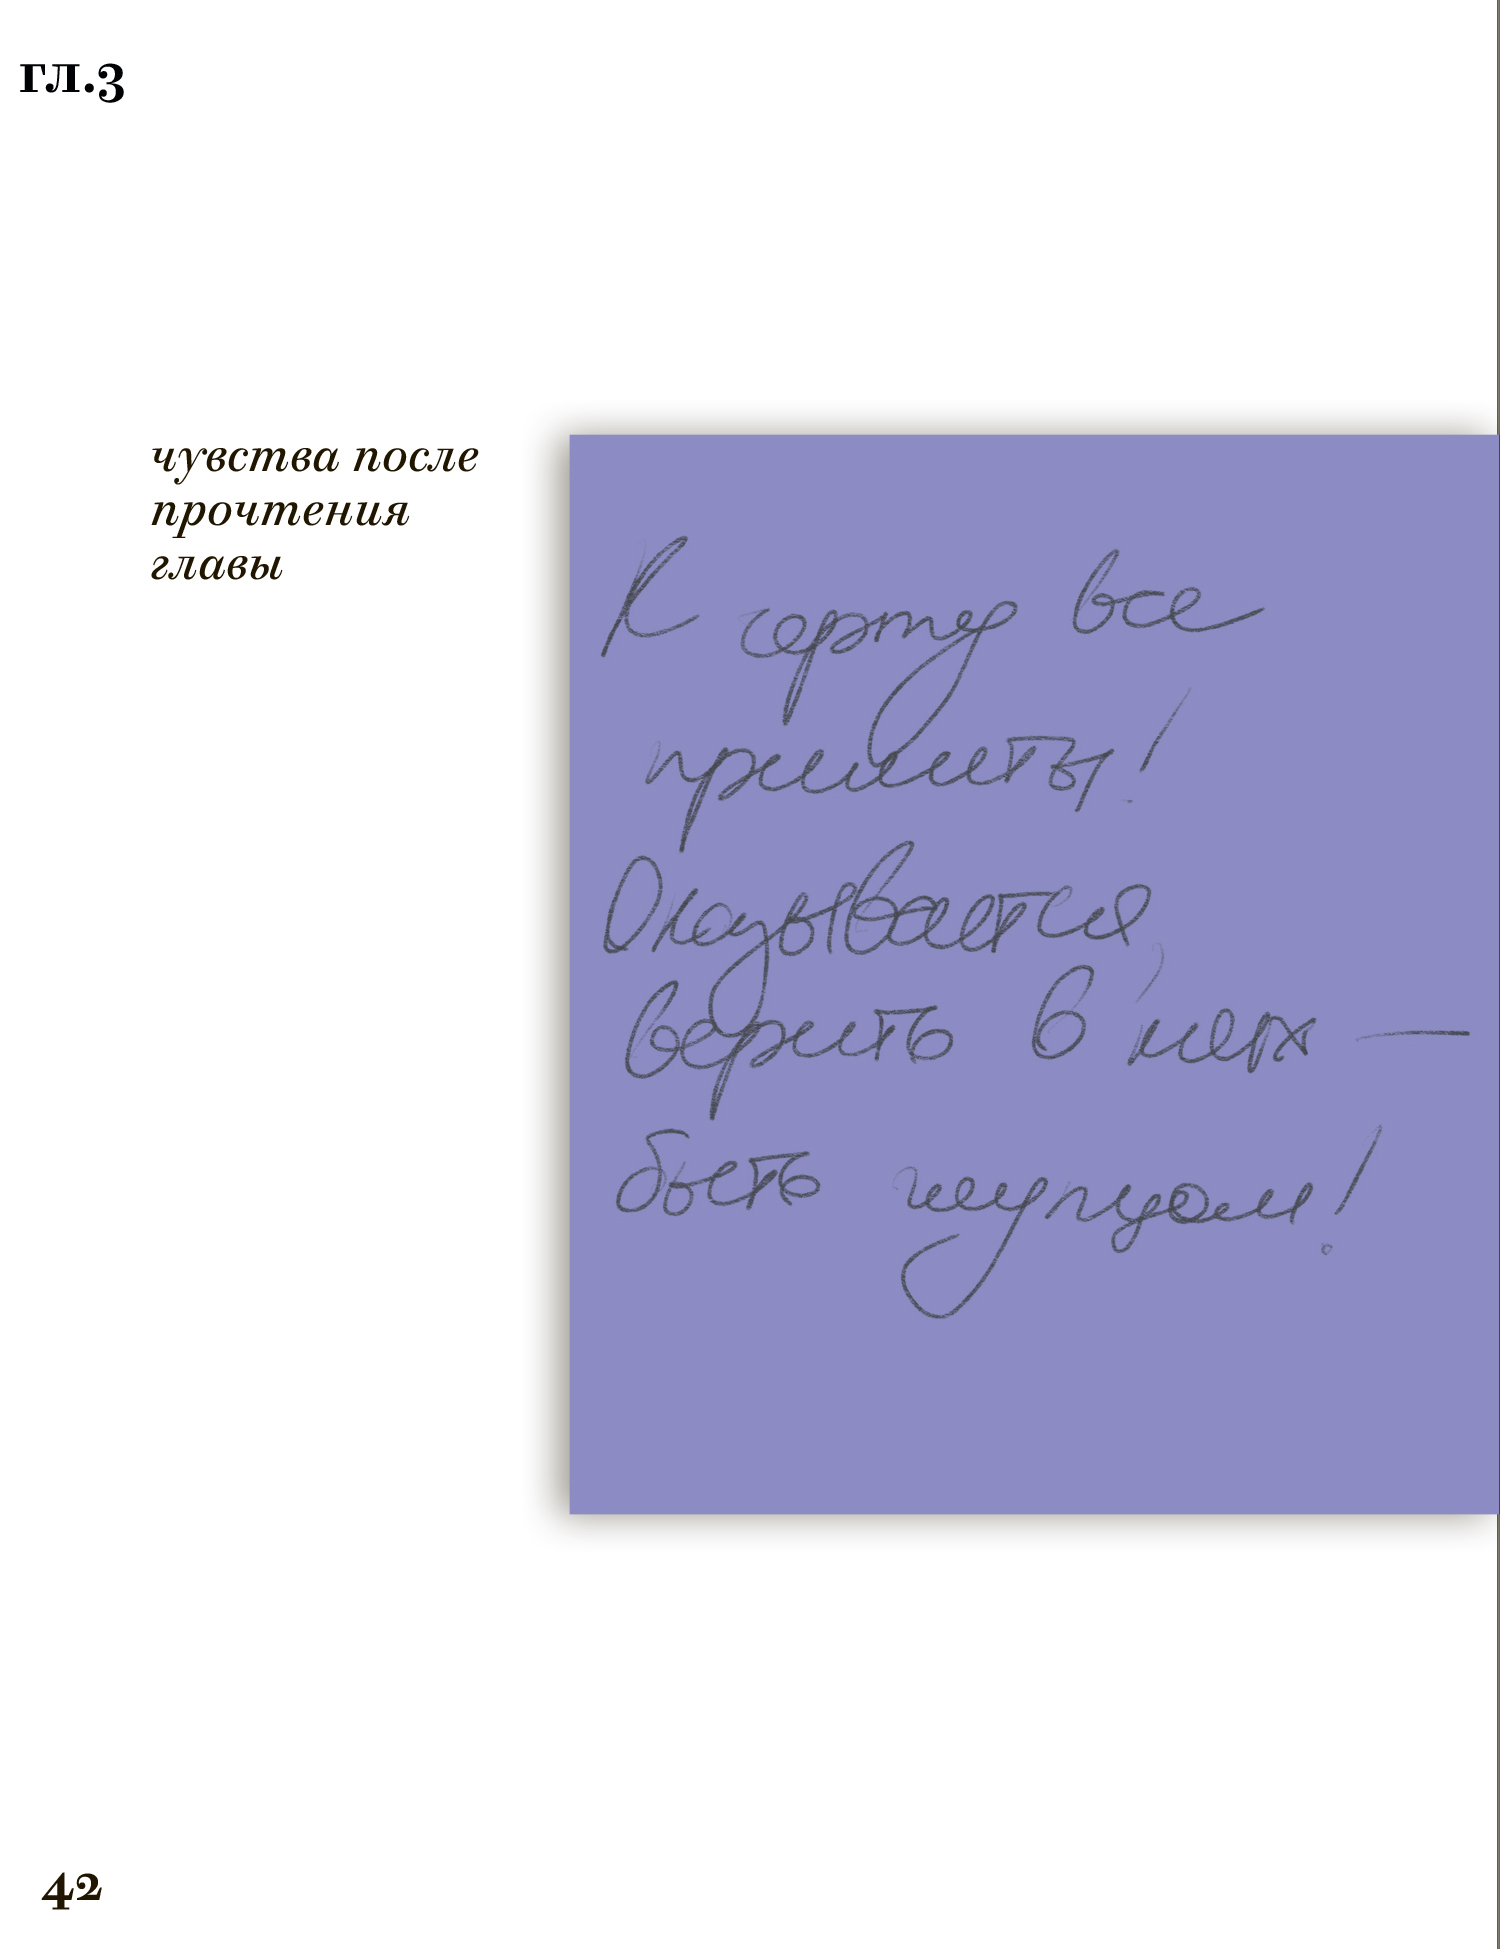 гл.3
чувства после
прочтения
главы
К черту все
приметы!
Оказывается,
верить в них —
быть глупцом!
42